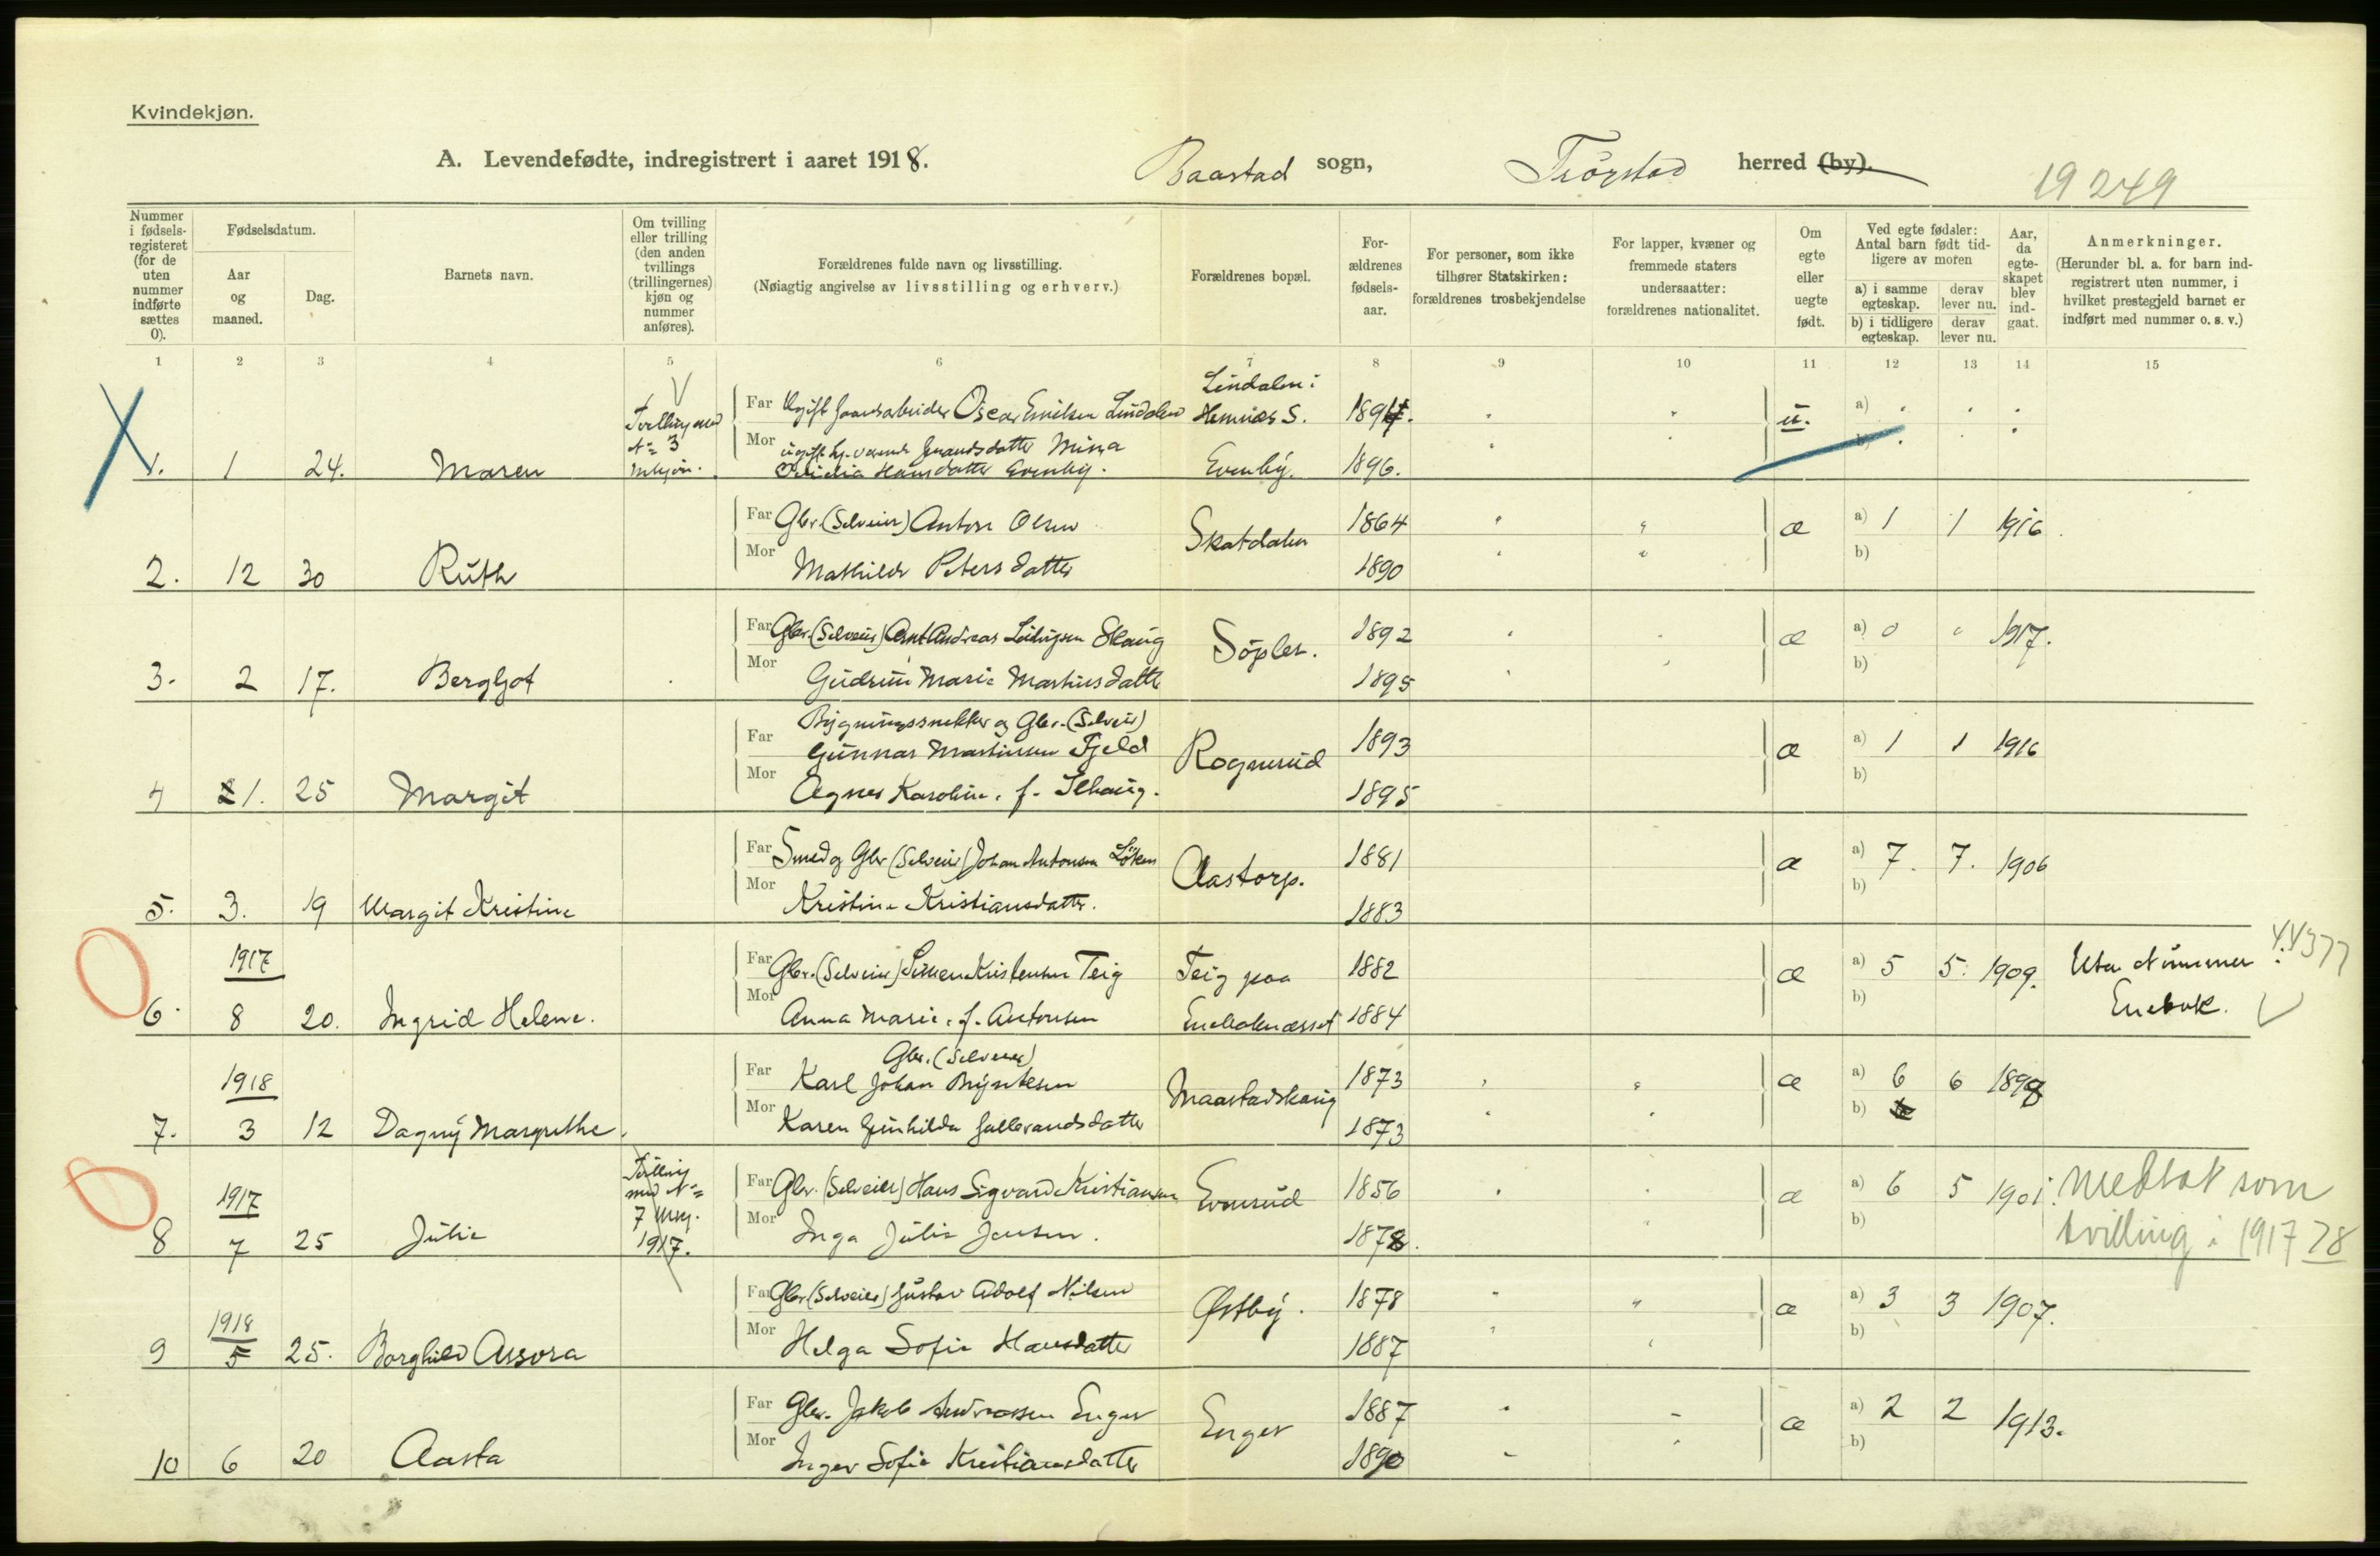 Kvindekjøn.
A. Levendefødte, indregistrert i aaret 1918. Baastad sogn, Trøgstad herred (by).
19 249
Nummer i fødselsregisteret (for de uten nummer indførte sættes 0).
Fødselsdatum.
Aar og maaned.
Dag.
Barnets navn.
Om tvilling eller trilling (den anden tvillings (trillingernes) kjøn og nummer anføres).
Forældrenes fulde navn og livsstilling.
(Nøiagtig angivelse av livsstilling og erhverv.)
Forældrenes bopæl.
Forældrenes fødselsaar.
For personer, som ikke tilhører Statskirken: forældrenes trosbekjendelse
For lapper, kvæner og fremmede staters undersaatter: forældrenes nationalitet.
Om egte eller uegte født.
Ved egte fødsler: Antal barn født tidligere av moren
a) i samme egteskap. derav lever nu.
b) i tidligere egteskap. derav lever nu.
Aar, da egteskapet blev indgaat.
Anmerkninger.
(Herunder bl. a. for barn indregistrert uten nummer, i hvilket prestegjeld barnet er indført med nummer o. s. v.)
1 2 3 4 5 6 7 8 9 10 11 12 13 14 15
Tvilling med
Nº 3
mkjøn.
Far Ugift Oscar Emilsen Lindalen Lindalen i Hemnæs S. 1894. u. a)
Mor ugift Mina
1. 1 24. Maren Hansdatter Evenby. Evenby. 1896. b)
Far Gbr. (Selveier) Anton Olsen Skatdalen 1864 æ a) 1 1 1916
Mor b)
2. 12 30 Ruth Mathilde Petersdatter 1890
Far Gbr. (Selveier) Arnt Andreas Skaug 1892 æ a) 0 1917.
Mor b)
3. 2 17. Bergljot Gudrun Marie Martinsdatter 1895
Bygningssnekker og Gbr. (Selveier)
Far Gunnar Martinsen Fjeld Rognerud 1893 æ a) 1 1 1916
Mor b)
4 1. 25 Margit Agnes Karoline, f. 1895
Far Smed og Gbr (Selveier) Johan Antonsen Løken Aastorp. 1881 æ a) 7. 7. 1906
Mor b)
5. 3. 19 Margit Kristine Kristine Kristiansdatter. 1883
1917 Far Gbr. (Selveier) Simen Kristensen Teig Teig paa 1882 æ a) 5 5. 1909. Uten Nummer 4.4377
Mor b)
6. 8 20. Ingrid Helene. Anna Marie, f. Antonsen Eneboknæsset 1884 Enebok.
Gbr. (Selveier)
1918 Far Karl Johan Byntesen Maastadskaug 1873 æ a) 6 6 1898
Mor b)
7. 3 12 Dagny Margrethe. Karen Gunhilda Hallvardsdatter 1873
Tvilling
med Nº
7
1917.
1917 Far Gbr. (Selveier) Hans Sigvard Kristiansen 1856 æ a) 6 5 1901. Medtat som
Mor b)
8 7 25 Julie Inga Julie Jensen. 1878. tvilling i 1917 78
1918 Far Gbr (Selveier) Gustav Adolf Nilsen Østby. 1878 æ a) 3 3 1907.
Mor b)
9 5 25. Borghild Assora Helga Sofie Hansdatter 1887
Far Gbr. Jakob Andreassen Enger Enger 1887 æ a) 2 2 1913.
Mor b)
10 6 20 Aasta Inger Sofie Kristiansdatter 1890